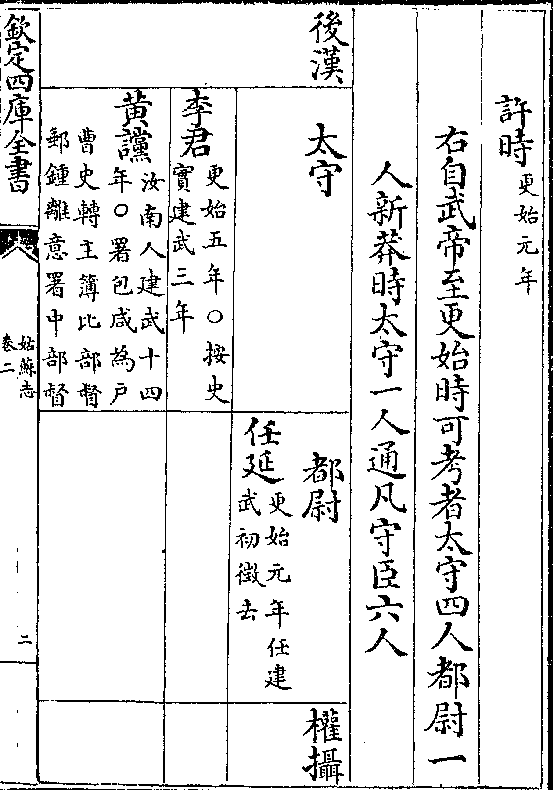 許時更始元年
右自武帝至更始時可考者太守四人都尉一
人新莽時太守一人通凡守臣六人
後漢
太守
都尉
權攝
任延更始元年任建
武初徵去
李君更始五年○按史
實建武三年
黃讜汝南人建武十四
年○署包咸為戶
曹史轉主簿比部督
郵鍾離意署中部督
欽定四庫全書
姑蘇志
卷二
二